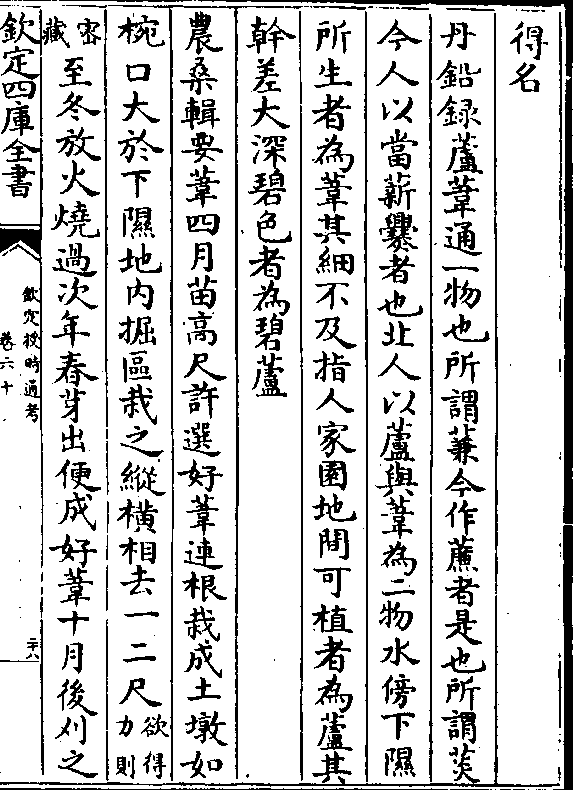 得名
丹鉛録蘆葦通一物也所謂蒹今作薕者是也所謂菼
今人以當薪爨者也北人以蘆與葦為二物水傍下隰
所生者為葦其細不及指人家園地間可植者為蘆其
幹差大深碧色者為碧蘆
農桑輯要葦四月苗高尺許選好葦連根栽成土墩如
椀口大於下隰地内掘區栽之縱横相去一二尺欲得力則
密藏至冬放火燒過次年春芽出便成好葦十月後刈之
欽定四庫全書
欽定授時通考
卷六十
二十八